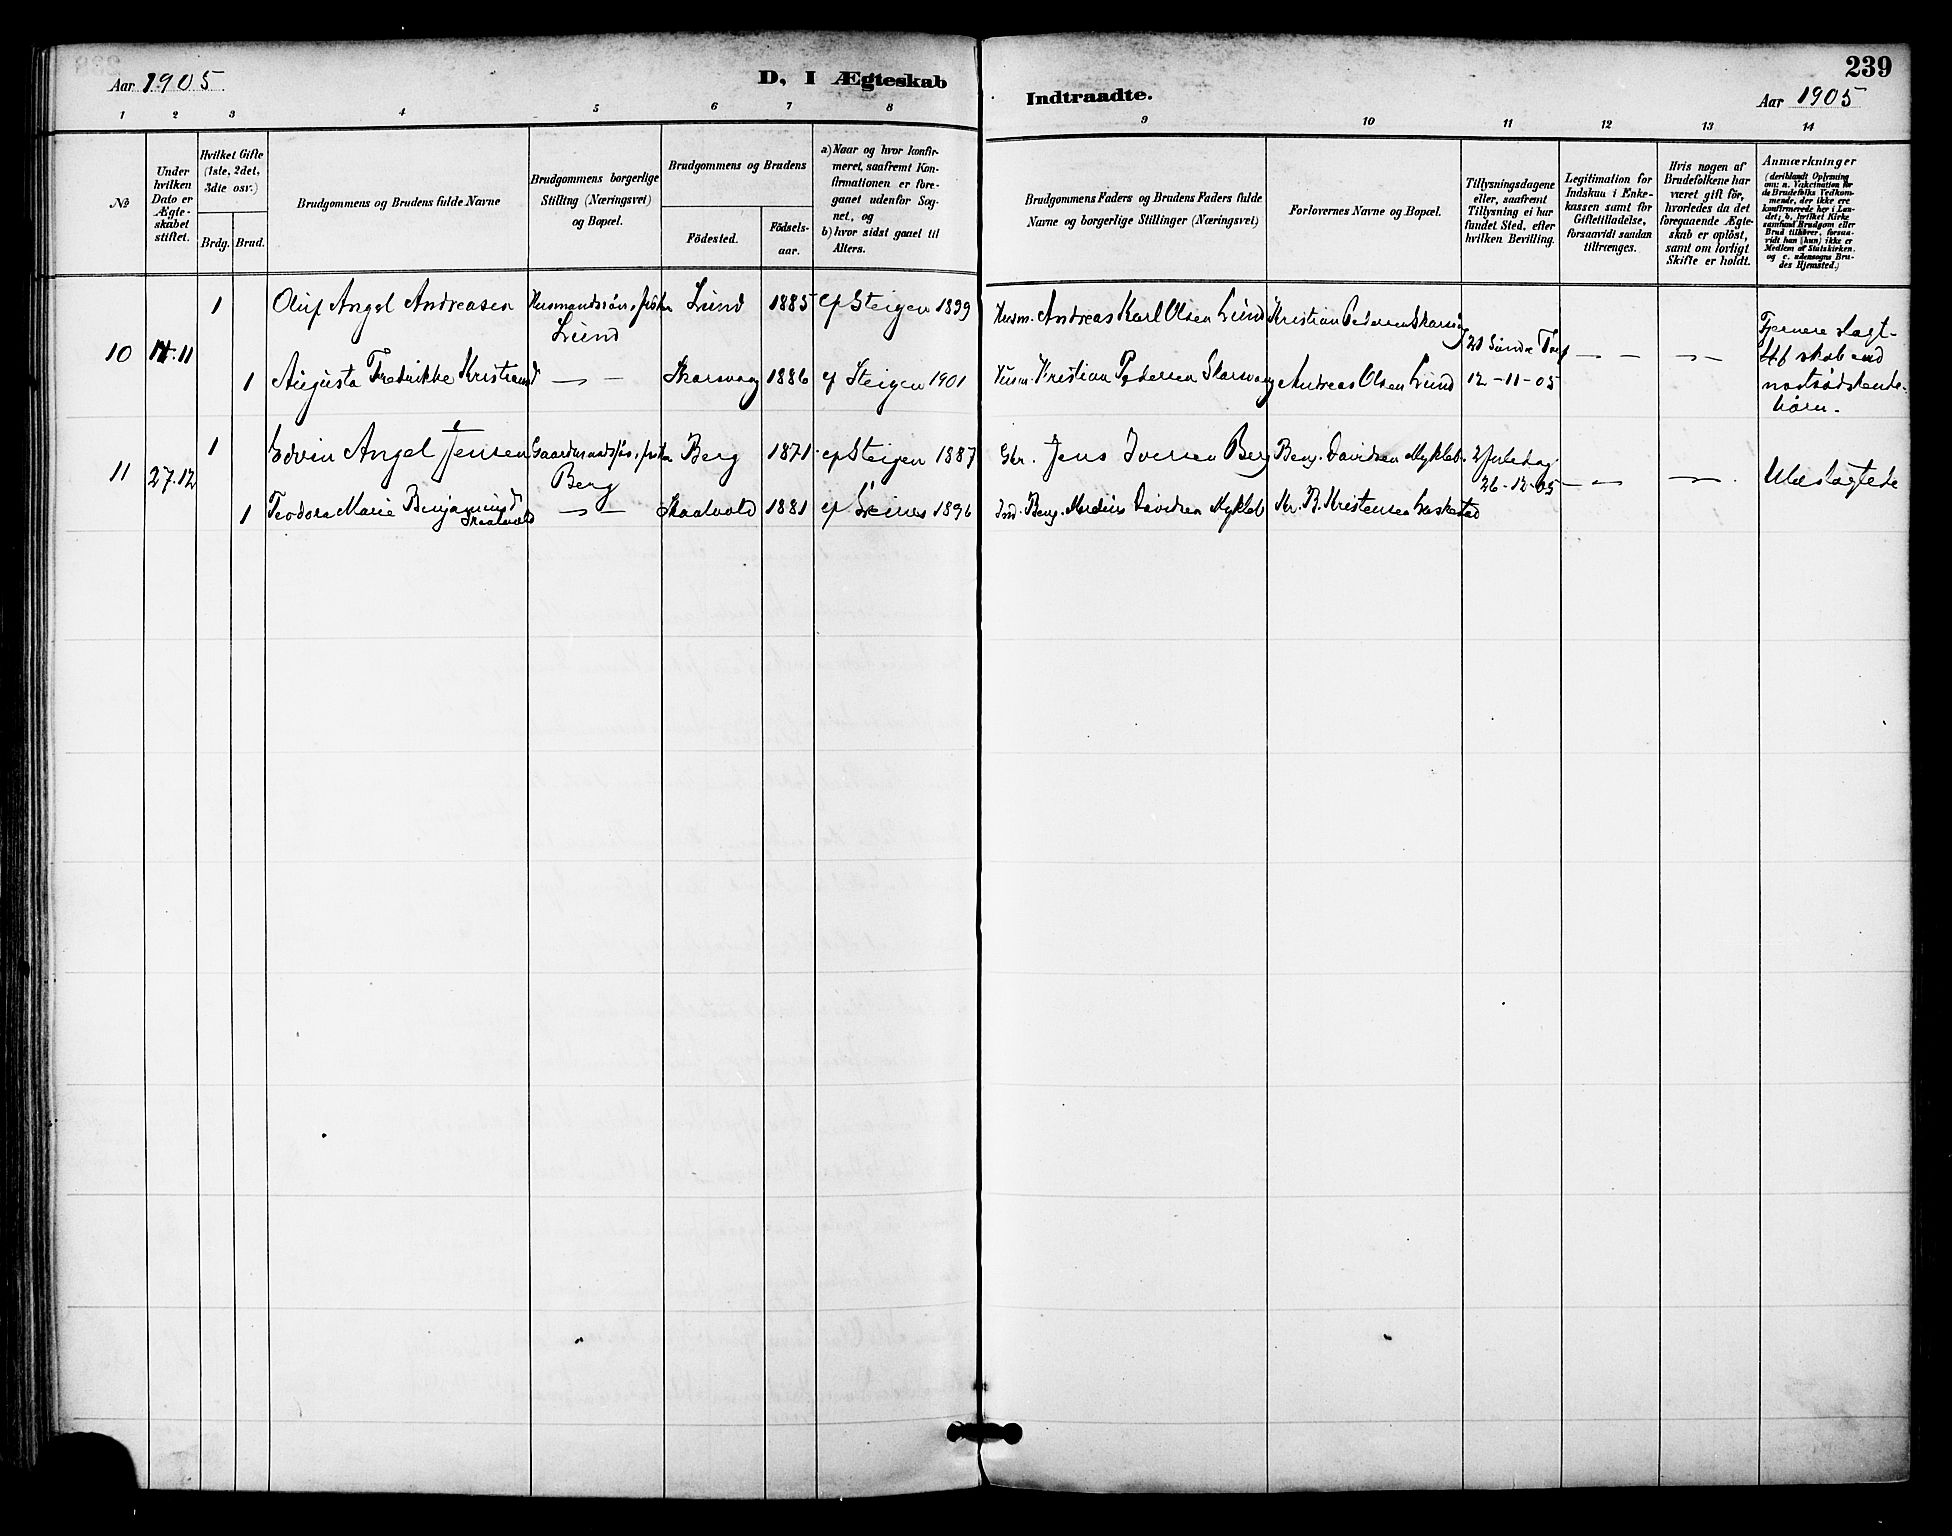 Aar 1905.
D, I Ægteskab
Indtraadte.
239
Aar 1905
1 2 3 4 5 6 7 8 9 10 11 12 13 14
No
Under hvilken Dato er Ægteskabet stiftet.
Hvilket Gifte (1ste, 2det, 3die osv.)
Brdg. Brud.
Brudgommens og Brudens fulde Navne
Brudgommens borgerlige Stilling (Næringsvei) og Bopæl.
Brudgommens og Brudens
Födested.
Födsels-aar.
a) Naar og hvor konfirmeret, saafremt Konfirmationen er foregaaet udenfor Sognet, og
b) hvor sidst gaaet til Alters.
Brudgommens Faders og Brudens Faders fulde Navne og borgerlige Stillinger (Næringsvei)
Forlovernes Navne og Bopæl.
Tillysningsdagene eller, saafremt Tillysning ei har fundet Sted, efter hvilken Bevilling.
Legitimation for Indskua i Enkekassen samt for Giftetilladelse, forsaavidt saadan tiltrænges.
Hvis nogen af Brudefolkene har været gift för, hvorledes da det foregaaende Ægteskab er oplöst, samt om lovligt Skifte er holdt.
Anmærkninger
(deriblandt Oplysning om: a. Vakcination for de Brudefolks Vedkommende, der ikke ere konfirmerede her i Landet; b. hvilket Kirkesamfund Brudgom eller Brud tilhörer, forsaavidt han (hun) ikke er Medlem af Statskirken, og c. udensogns Brudes Hjemsted.)
10 11
1 Oluf Angel Andreasen Husmandssön, fisker Lund Lund 1885 cf Steigen 1899 Husm. Andreas Karl Olsen Lund Kristian Pedersen Skarsvåg
1 Augusta Fredrikke Kristiansd — Skarsvaag 1886 cf Steigen 1901 Husm. Kristian Pedersen Skarsvaag Andreas Olsen Lund
12-11-05
— — — —
Fjernere slægtskab end
börn.
11 27.12
1 Edvin Angel Jensen Gaardmandssön, fisker Berg Berg 1871 cf Steigen 1887 Gbr. Jens Iversen Berg Benj. Davidsen Mykleb. 2 Juledag 26-12-05
1 Teodora Marie Benjaminsd Skaalvold — Skaalvold 1881 cf Leines 1896 Benj. Mardius Davidsen Mykleb Kr. B. Kristensen Laskestad
— — — —
Ubeslægtede